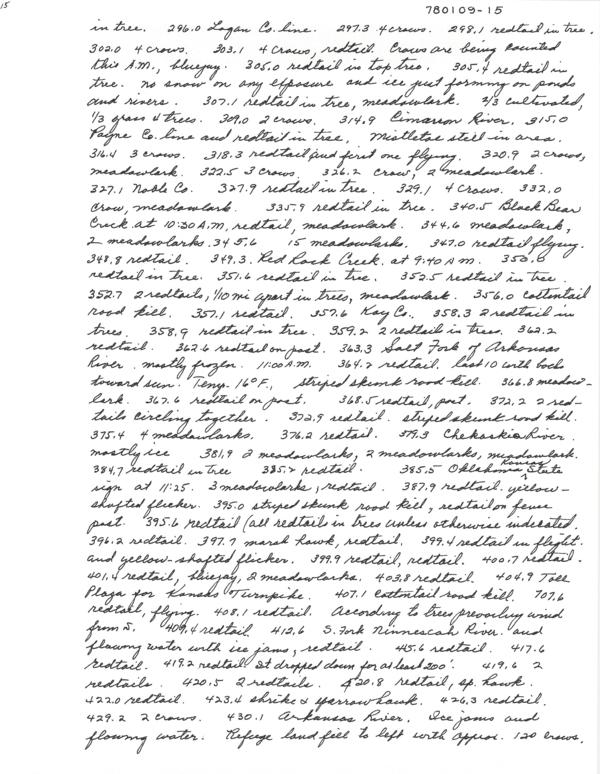 15
780109-15
in tree. 296.0 Logan Co. line. 297.3 4 crows. 298.1 redtail in tree.
302.0 4 crows. 303.1 4 crows, redtail. Crows are being counted
this A.M., bluejay. 305.0 redtail in top tree. 305.4 redtail in
tree. no snow on any exposure and ice just forming on ponds
and rivers. 307.1 redtail in tree, meadowlark. 2/3 cultivated,
1/3 grass & trees. 309.0 2 crows. 314.9 Cimarron River. 315.0
Payne Co. line and redtail in tree, Mistletoe still in area.
316.4 3 crows. 318.3 redtail and first one flying. 320.9 2 crows,
meadowlark. 322.5 3 crows. 326.2 crow, 2 meadowlark.
327.1 Noble Co. 327.9 redtail in tree. 329.1 4 crows. 332.0
crow, meadowlark. 335.9 redtail in tree. 340.5 Black Bear
Creek at 10:30 A.M., redtail, meadowlark. 344.6 meadowlark,
2 meadowlarks. 345.6 15 meadowlarks. 347.0 redtail flying.
348.8 redtail. 349.3. Red Rock Creek. at 9:40 A.M. 350.0
redtail in tree. 351.6 redtail in tree. 352.5 redtail in tree.
352.7 2 redtails, 1/10 mi apart in trees, meadowlark. 356.0 cottontail
road kill. 357.1 redtail. 357.6 Kay Co. 358.3 2 redtail in
trees. 358.9 redtail in tree. 359.2 2 redtail in trees. 362.2
redtail. 362.6 redtail on post. 363.3 Salt Fork of Arkansas
River. mostly frozen. 11:00 A.M. 364.2 redtail. last 10 with backs
toward sun. Temp. 16°F., striped skunk road kill. 366.8 meadow-
lark. 367.6 redtail on post. 368.5 redtail, post. 372.2 2 red-
tails circling together. 372.9 redtail. striped skunk road kill.
375.4 4 meadowlarks. 376.2 redtail. 379.3 Chekaskia River.
mostly ice 381.9 2 meadowlarks, 2 meadowlarks, meadowlark.
384.7 redtail in tree 385.2 redtail. 385.5 Oklahoma Kansas State
sign at 11:25. 3 meadowlarks, redtail. 387.9 redtail. yellow-
shafted flicker. 395.0 striped skunk road kill, redtail on fence
post. 395.6 redtail (all redtail in trees unless otherwise indicated.
396.2 redtail. 397.7 marsh hawk, redtail. 399.4 redtail in flight.
and yellow-shafted flicker. 399.9 redtail, redtail. 400.7 redtail.
401.4 redtail, bluejay, 2 meadowlarks. 403.8 redtail. 404.9 Toll
Plaza for Kansas Turnpike. 407.1 cottontail road kill. 707.6
redtail, flying. 408.1 redtail. According to trees prevailing wind
from S. 409.4 redtail. 412.6 S. Fork Ninnescah River. and
flowing water with ice jams, redtail. 415.6 redtail. 417.6
redtail. 419.2 redtail It dropped down for at least 200'. 419.6 2
redtails. 420.5 2 redtails. 420.8 redtail, sp. hawk.
422.0 redtail. 423.4 shrike & sparrow hawk. 426.3 redtail.
429.2 2 crows. 430.1 Arkansas River. Ice jams and
flowing water. Refuge land fill to left with approx. 120 crows.